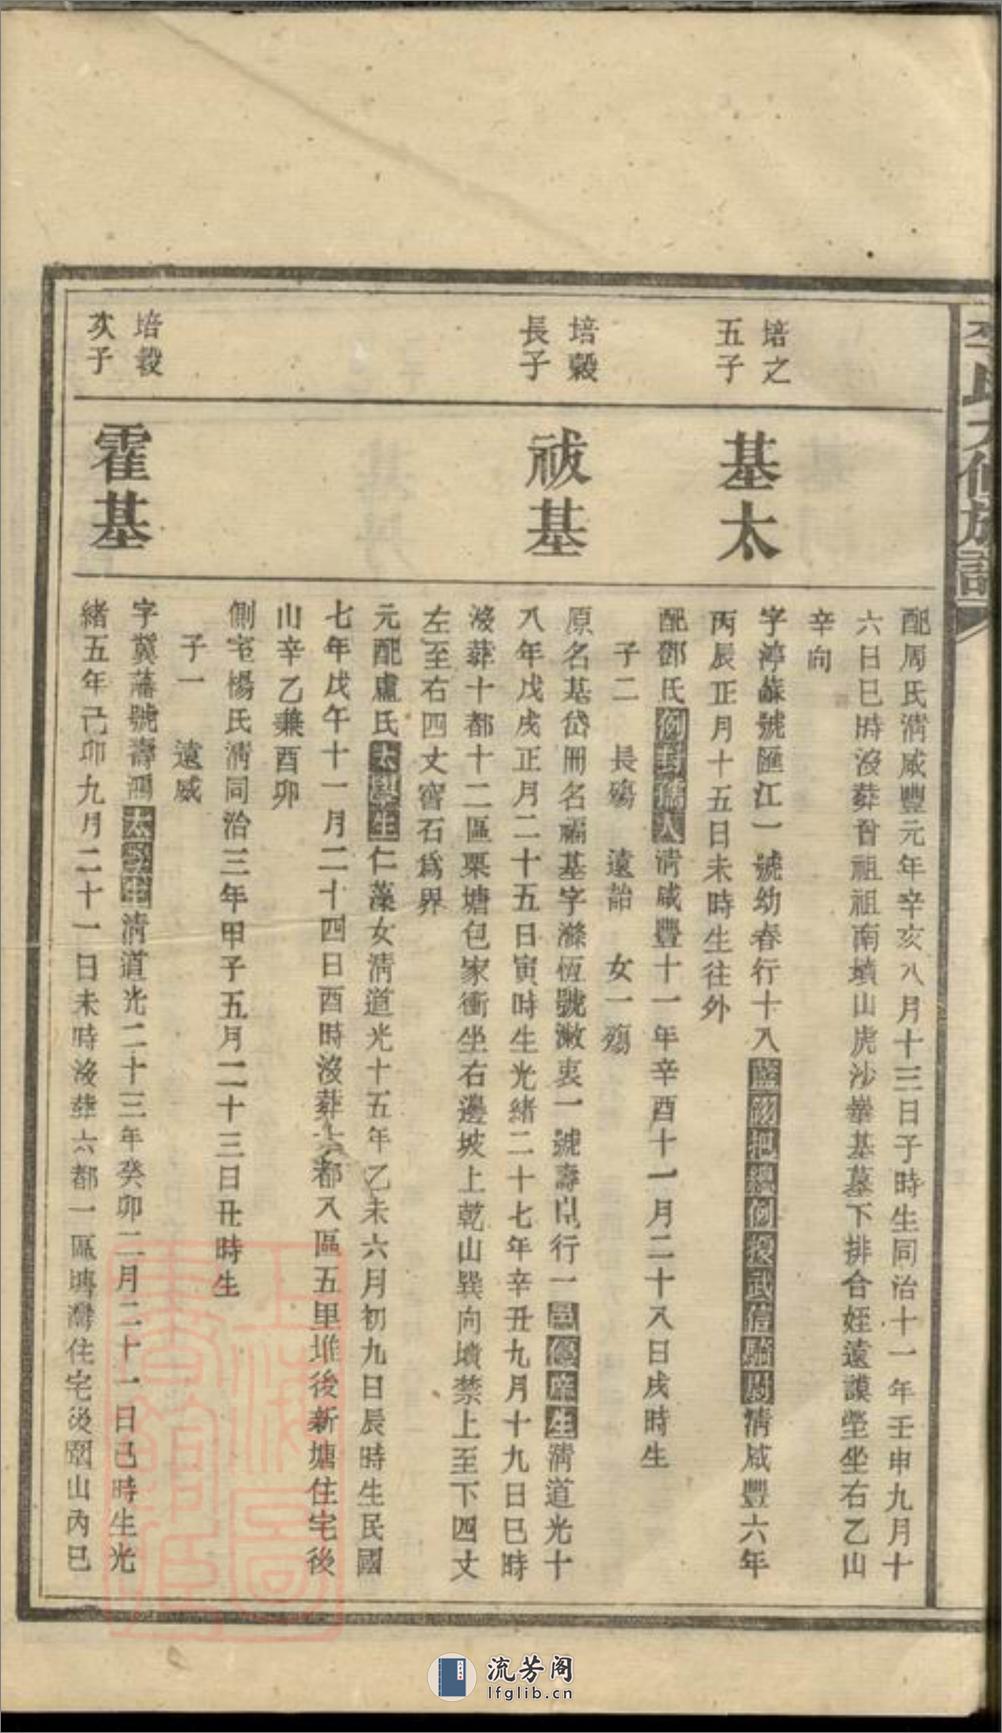 李氏六修族譜
配周氏淸咸豐元年辛亥八月十三日子時生同治十一年壬申九月十
六日巳時沒葬曾祖祖南墳山虎沙嶽基墓下排合姪遠謨塋坐右乙山
辛向
培之
五子
基太
字渟蘇號匯江一號幼春行十八藍翎把總例授武信騎尉淸咸豐六年
丙辰正月十五日未時生往外
配鄧氏例封孺人淸咸豐十一年辛酉十一月二十八日戌時生
子二 長殤 遠詒 女一殤
培穀
長子
祓基
原名基岱冊名福基字滌恆號漱裏一號壽凬行一邑優庠生淸道光十
八年戊戌正月二十五日寅時生光緒二十七年辛丑九月十九日巳時
沒葬十都十二區栗塘包家衝坐右邊坡上乾山巽向墳禁上至下四丈
左至右四丈窖石爲界
元配盧氏太學生仁藻女淸道光十五年乙未六月初九日辰時生民國
七年戊午十一月二十四日酉時沒葬六都八區五里堆後新塘住宅後
山辛乙兼酉卯
側室楊氏淸同治三年甲子五月二十三日丑時生
子一 遠威
培穀
次子
霍基
字冀藩號壽潤太學生淸道光二十三年癸卯二月二十一日巳時生光
緒五年己卯九月二十一日未時沒葬六都一區塘灣住宅後園山內巳
上海圖書館藏
流芳阁
lfglib.cn